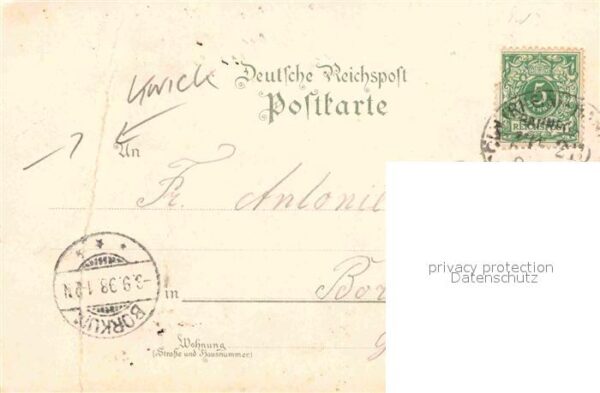 Knick
Deutsche Reichspost
Postkarte
5
An
Fr. Antonie
privacy protection
Datenschutz
-3.9.98.1-2N
BORKUM
in
Bor
Wohnung
(Straße und Hausnummer)